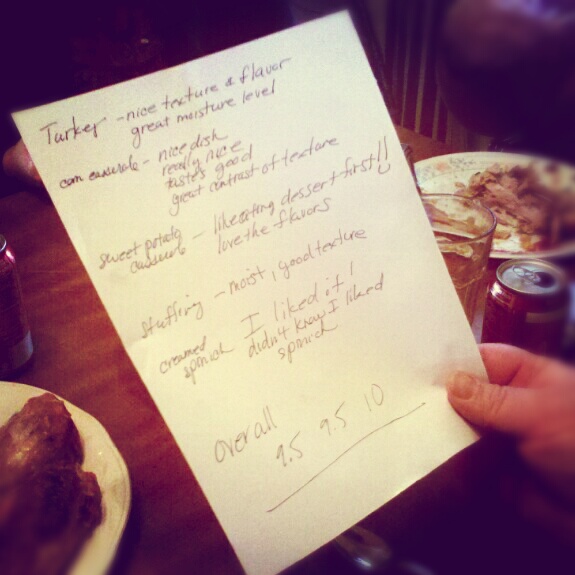 Turkey - nice texture & flavor
great moisture level
corn casserole - nice dish
really nice
tastes good
great contrast of texture
sweet potato casserole - like eating dessert first!!
love the flavors
stuffing - moist, good texture
creamed spinich I liked it!
didn't know I liked
spinich
overall 9.5 9.5 10